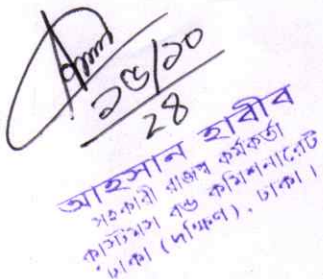 ২৬/১০
২৪
আহসান হাবীব
সহকারী রাজস্ব কর্মকর্তা
কাস্টমস বন্ড কমিশনারেট
ঢাকা (দক্ষিণ), ঢাকা।